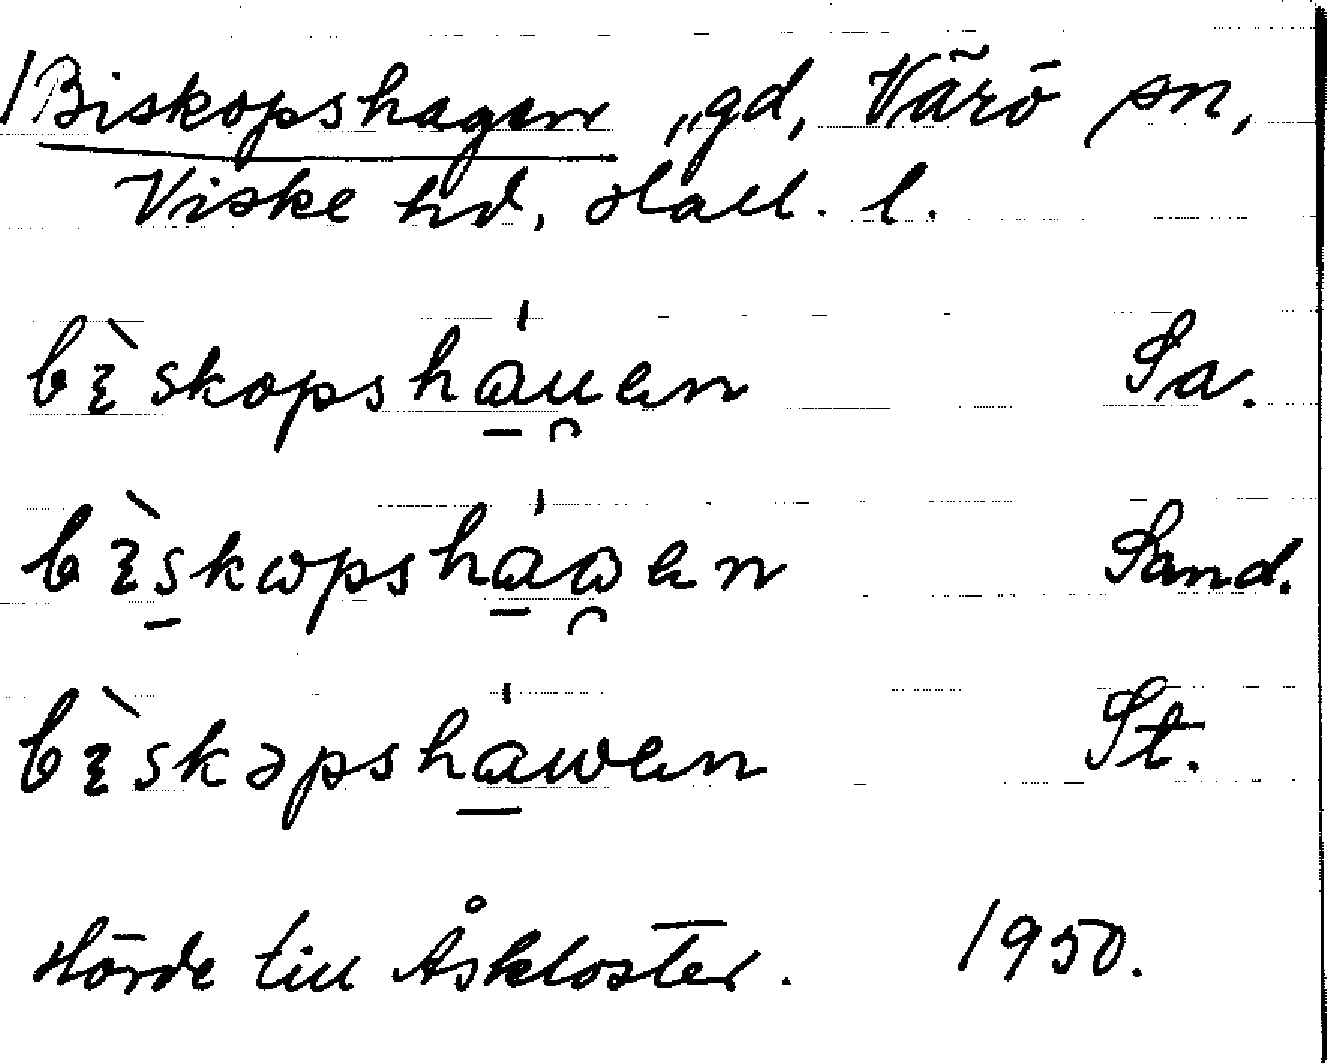 /Biskopshagen, gd, Värö sn,
Viske hd, Hall. l.
bɩ̀skopshá̠u̯en Sa.
bɩ̀s̠kωpshá̠ω̯en Sand.
bɩ̀skəpshá̠wen St.
Hörde till Åskloster. 1950.